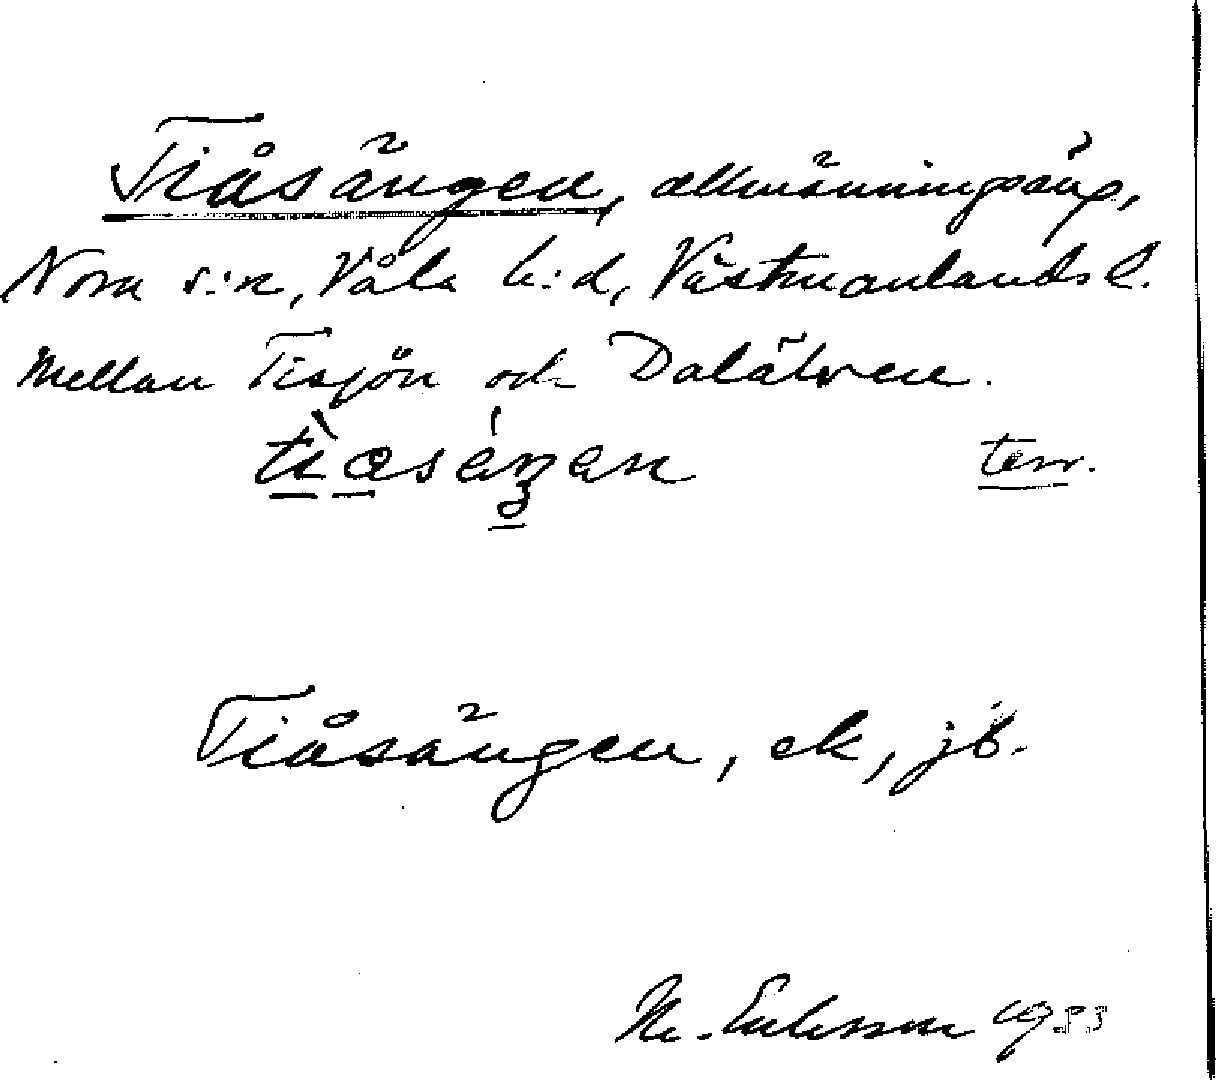 Tiåsängen, allmänningsäng,
Nora s:n, Våla h:d, Västmanlands l.
Mellan Tisjön och Dalälven.
terr.
Tiåsängen, ek, jb.
Eriksson 19